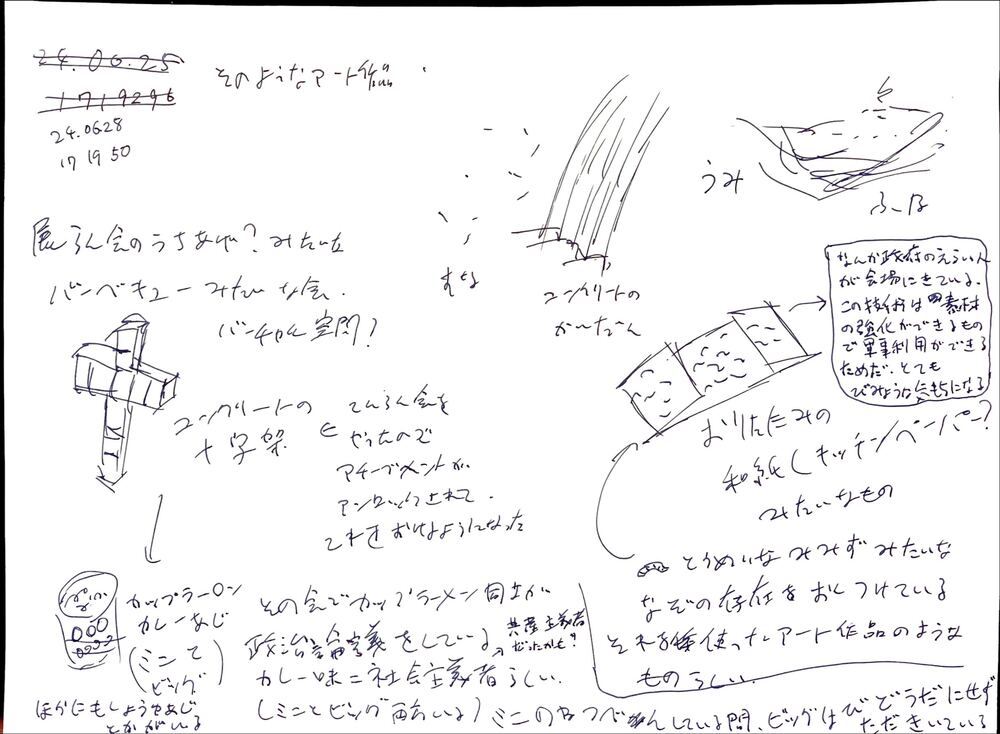 24.06.25
1719296
24.0628
17 19 50
そのようなアート作品
うみ
ふーね
すな
コンクリートの
かいだん
展らん会のうちあげ？みたいな
バーベキューみたいな会.
バーチャル空間？
コンクリートの
十字架
てんらん会を
やったので
アチーブメントが
アンロックされて.
これをおけるようになった
なんか政府のえらい人
が会場にきている.
この技術は素材
の強化ができるもの
で軍事利用ができる
ためだ. とても
びみょうな気もちになる
おりたたみの
和紙(キッチンペーパー？
みたいなもの
とうめいなみみずみたいな
なぞの存在をおしつけている
それを使ったアート作品のような
ものらしい.
カップラーメン
カレーあじ
(ミニと
ビッグ)
ほかにもしょうゆあじ
とかがいる
その会でカップラーメン同士が
政治論義をしている.
共産主義者
だったかも？
カレー味=社会主義者らしい.
(ミニとビッグ両方いる)
ミニの方がしている間、ビッグはびどうだにせず
ただきいている